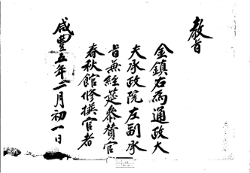 敎旨
金鎭右爲通政大
夫承政院左副承
旨兼經筵參贊官
春秋館修撰官者
咸豊五年二月初一日